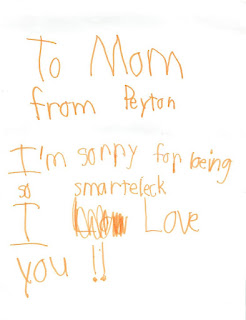 To Mom
from Peyton
I'm sorry for being
so smarteleck
I Love
you !!